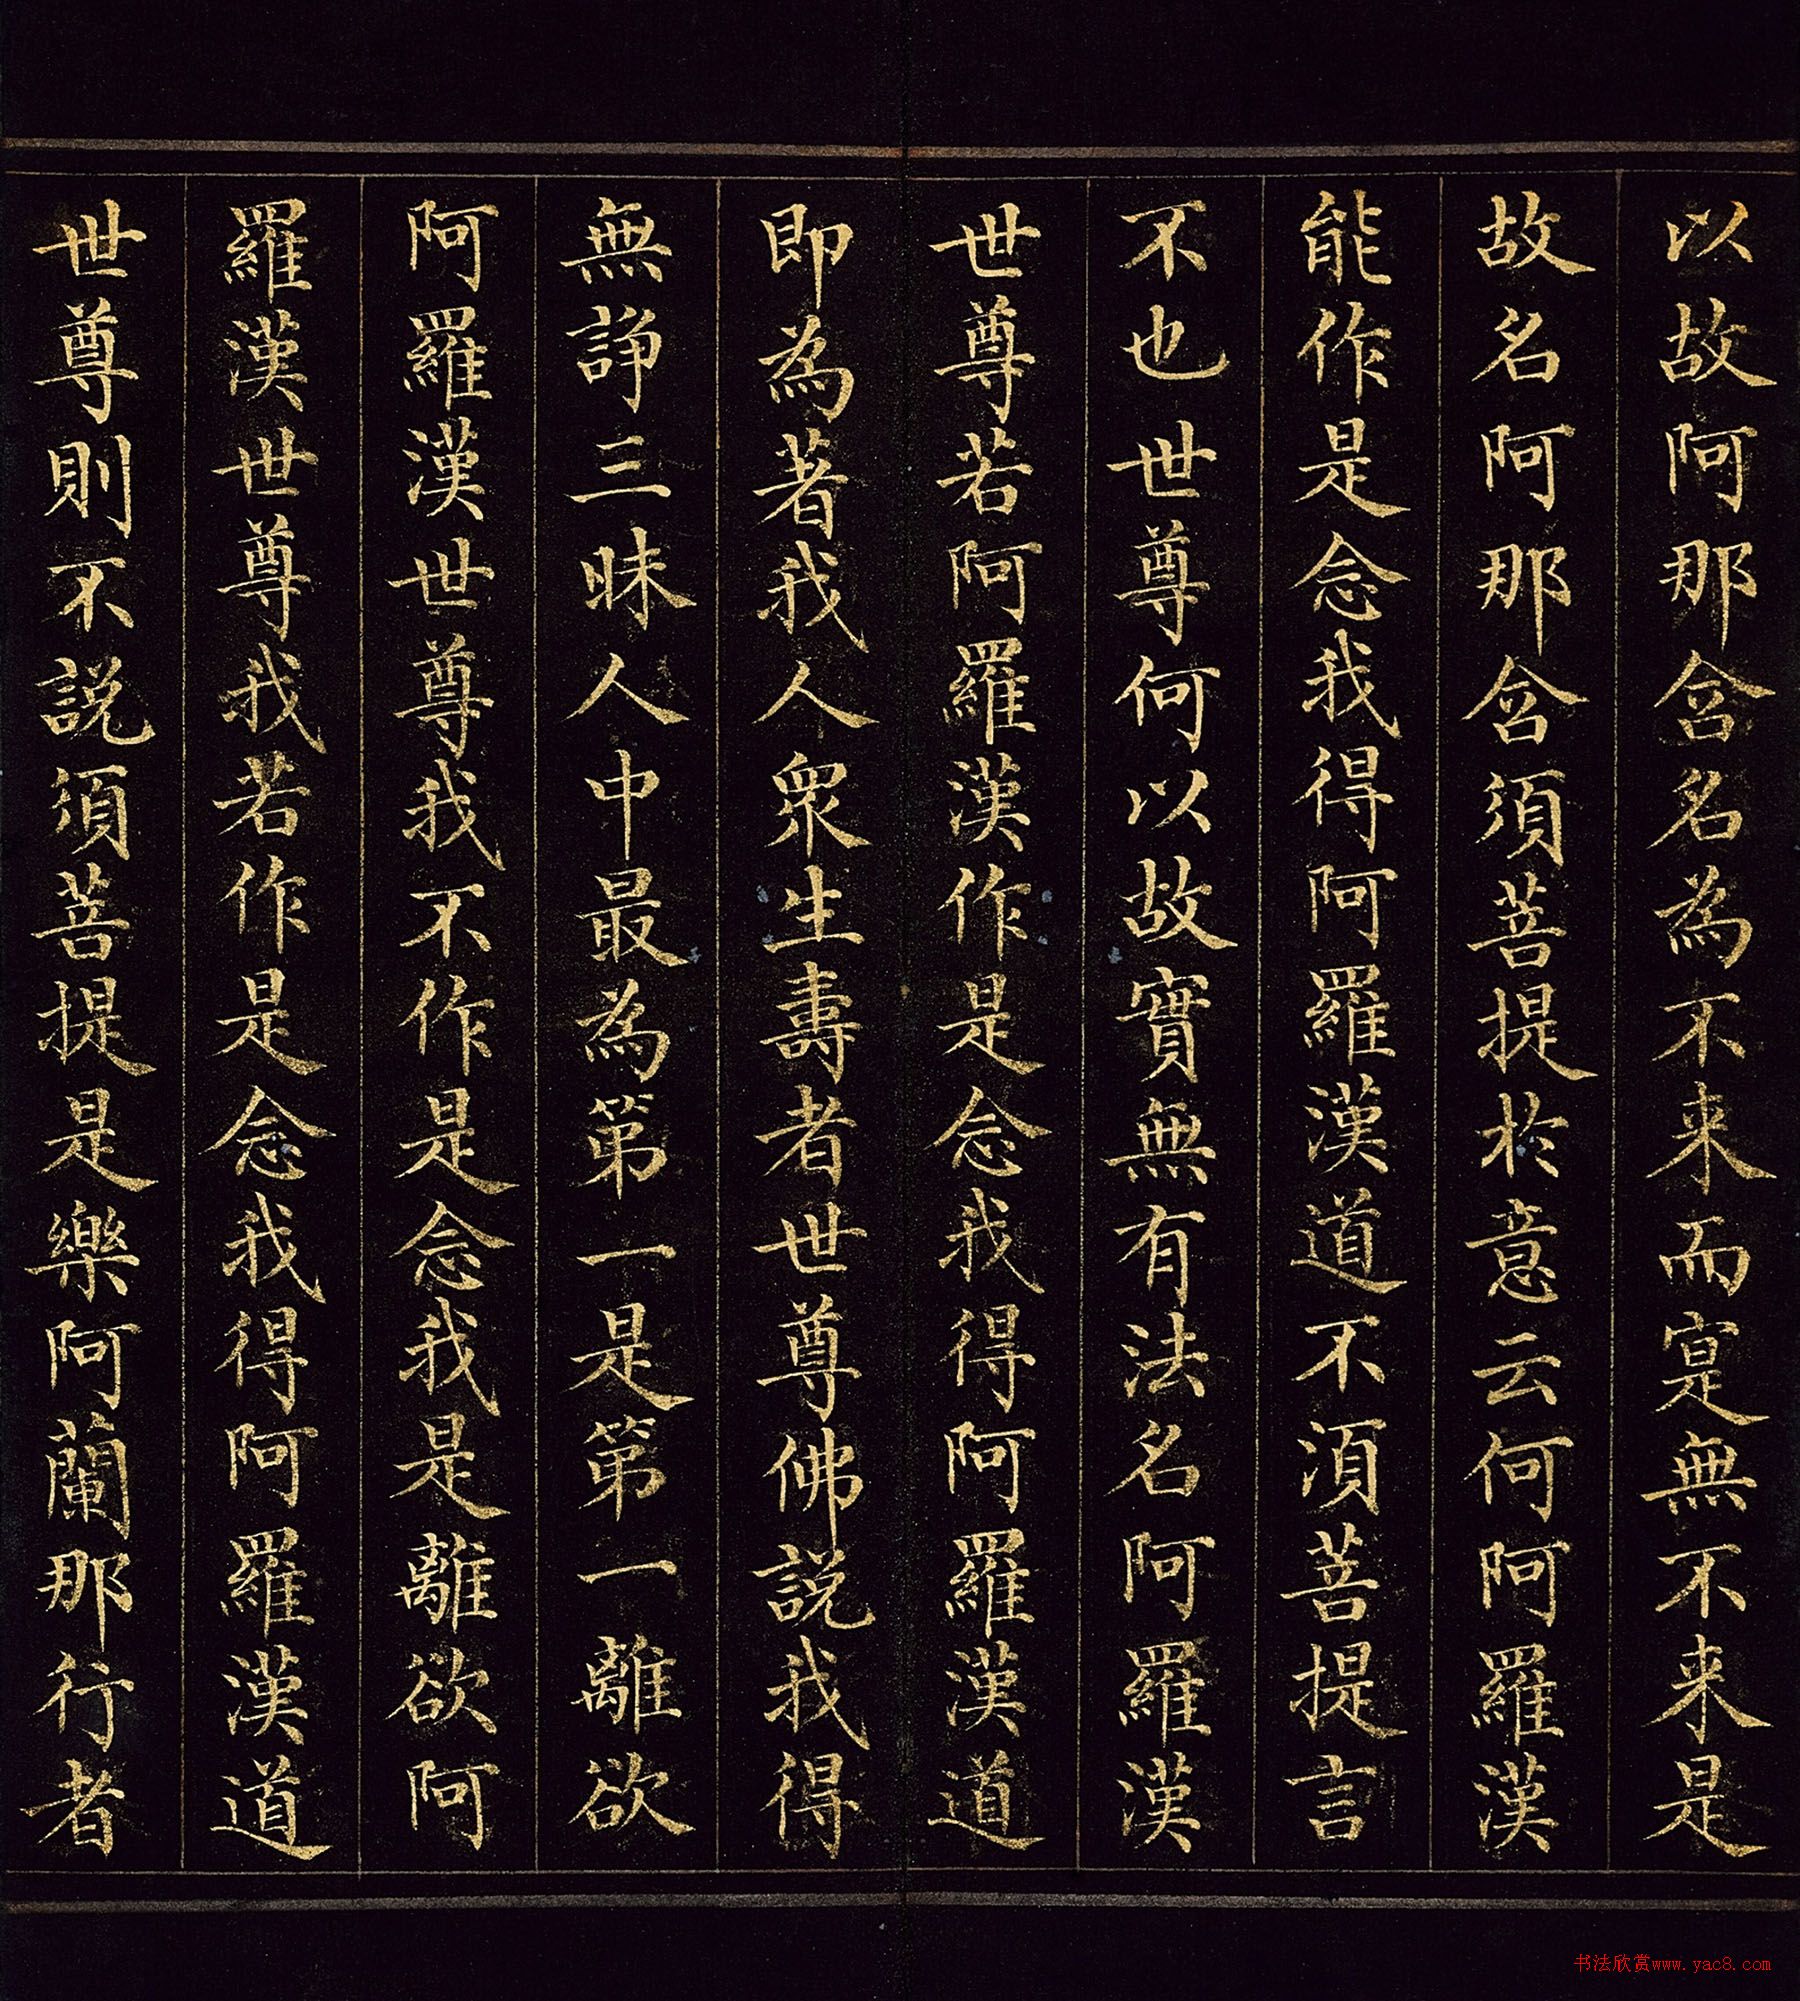 以故阿那含名為不来而寔無不来是
故名阿那含須菩提於意云何阿羅漢
能作是念我得阿羅漢道不須菩提言
不也世尊何以故實無有法名阿羅漢
世尊若阿羅漢作是念我得阿羅漢道
即為著我人衆生壽者世尊佛説我得
無諍三昧人中最為第一是第一離欲
阿羅漢世尊我不作是念我是離欲阿
羅漢世尊我若作是念我得阿羅漢道
世尊則不説須菩提是樂阿蘭那行者
书法欣赏www.yac8.com